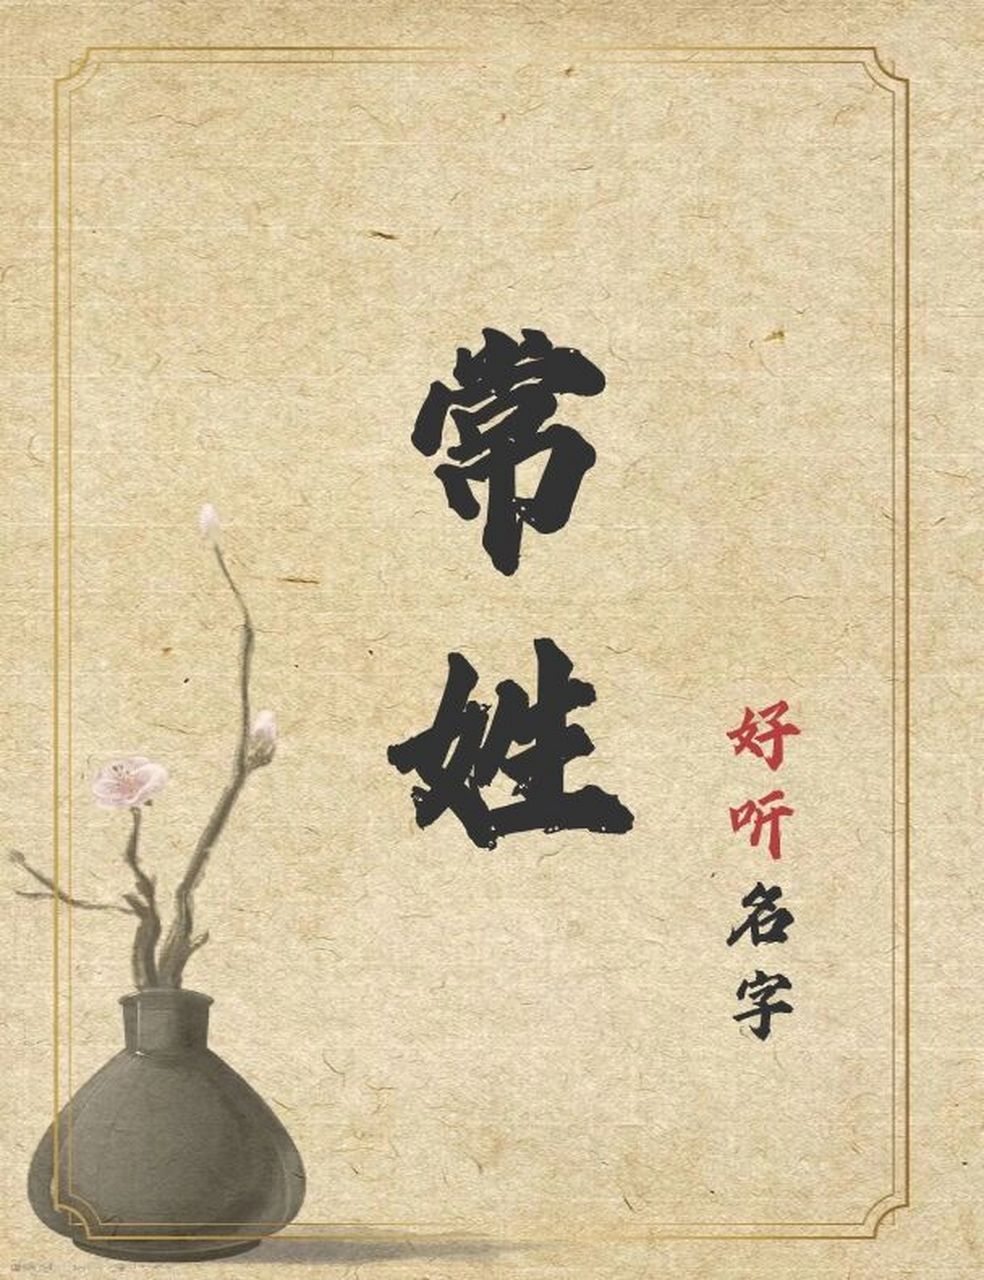 常姓
好听名字